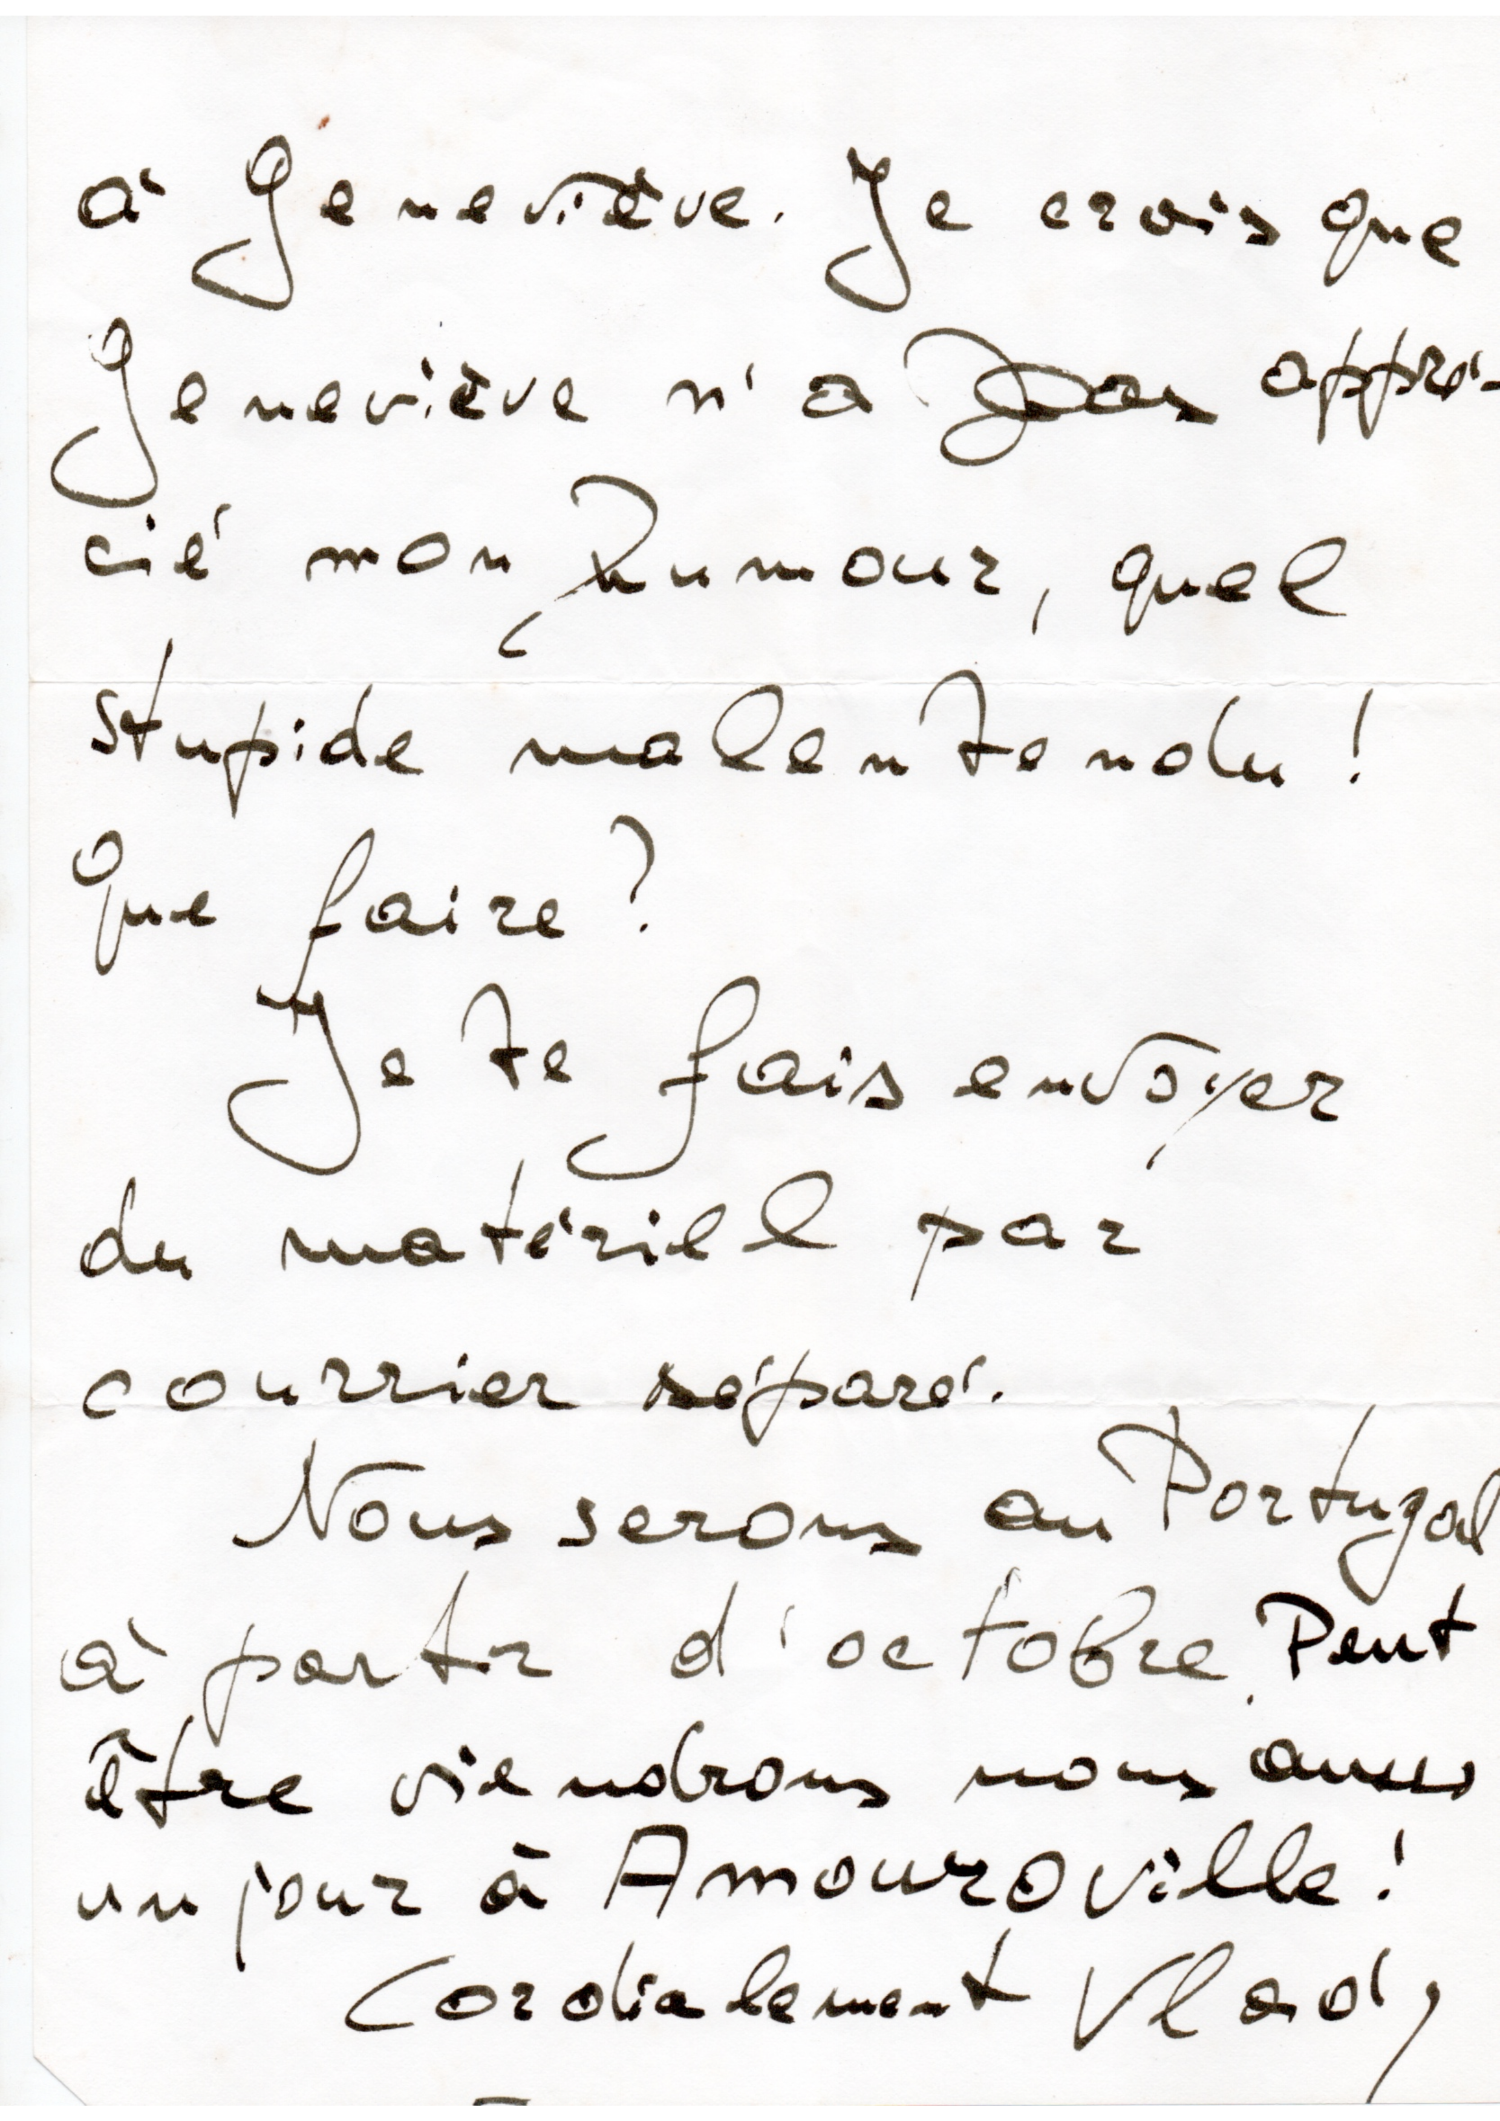 à Geneviève. Je crois que
Geneviève n'a pas appré-
cié mon humour, quel
stupide malentendu !
Que faire ?
Je te fais envoyer
du matériell par
courrier séparé.
Nous serons au Portugal
à partir d'octobre. Peut
être viendrons nous aussi
un jour à Amouroville !
Cordialement Vlady